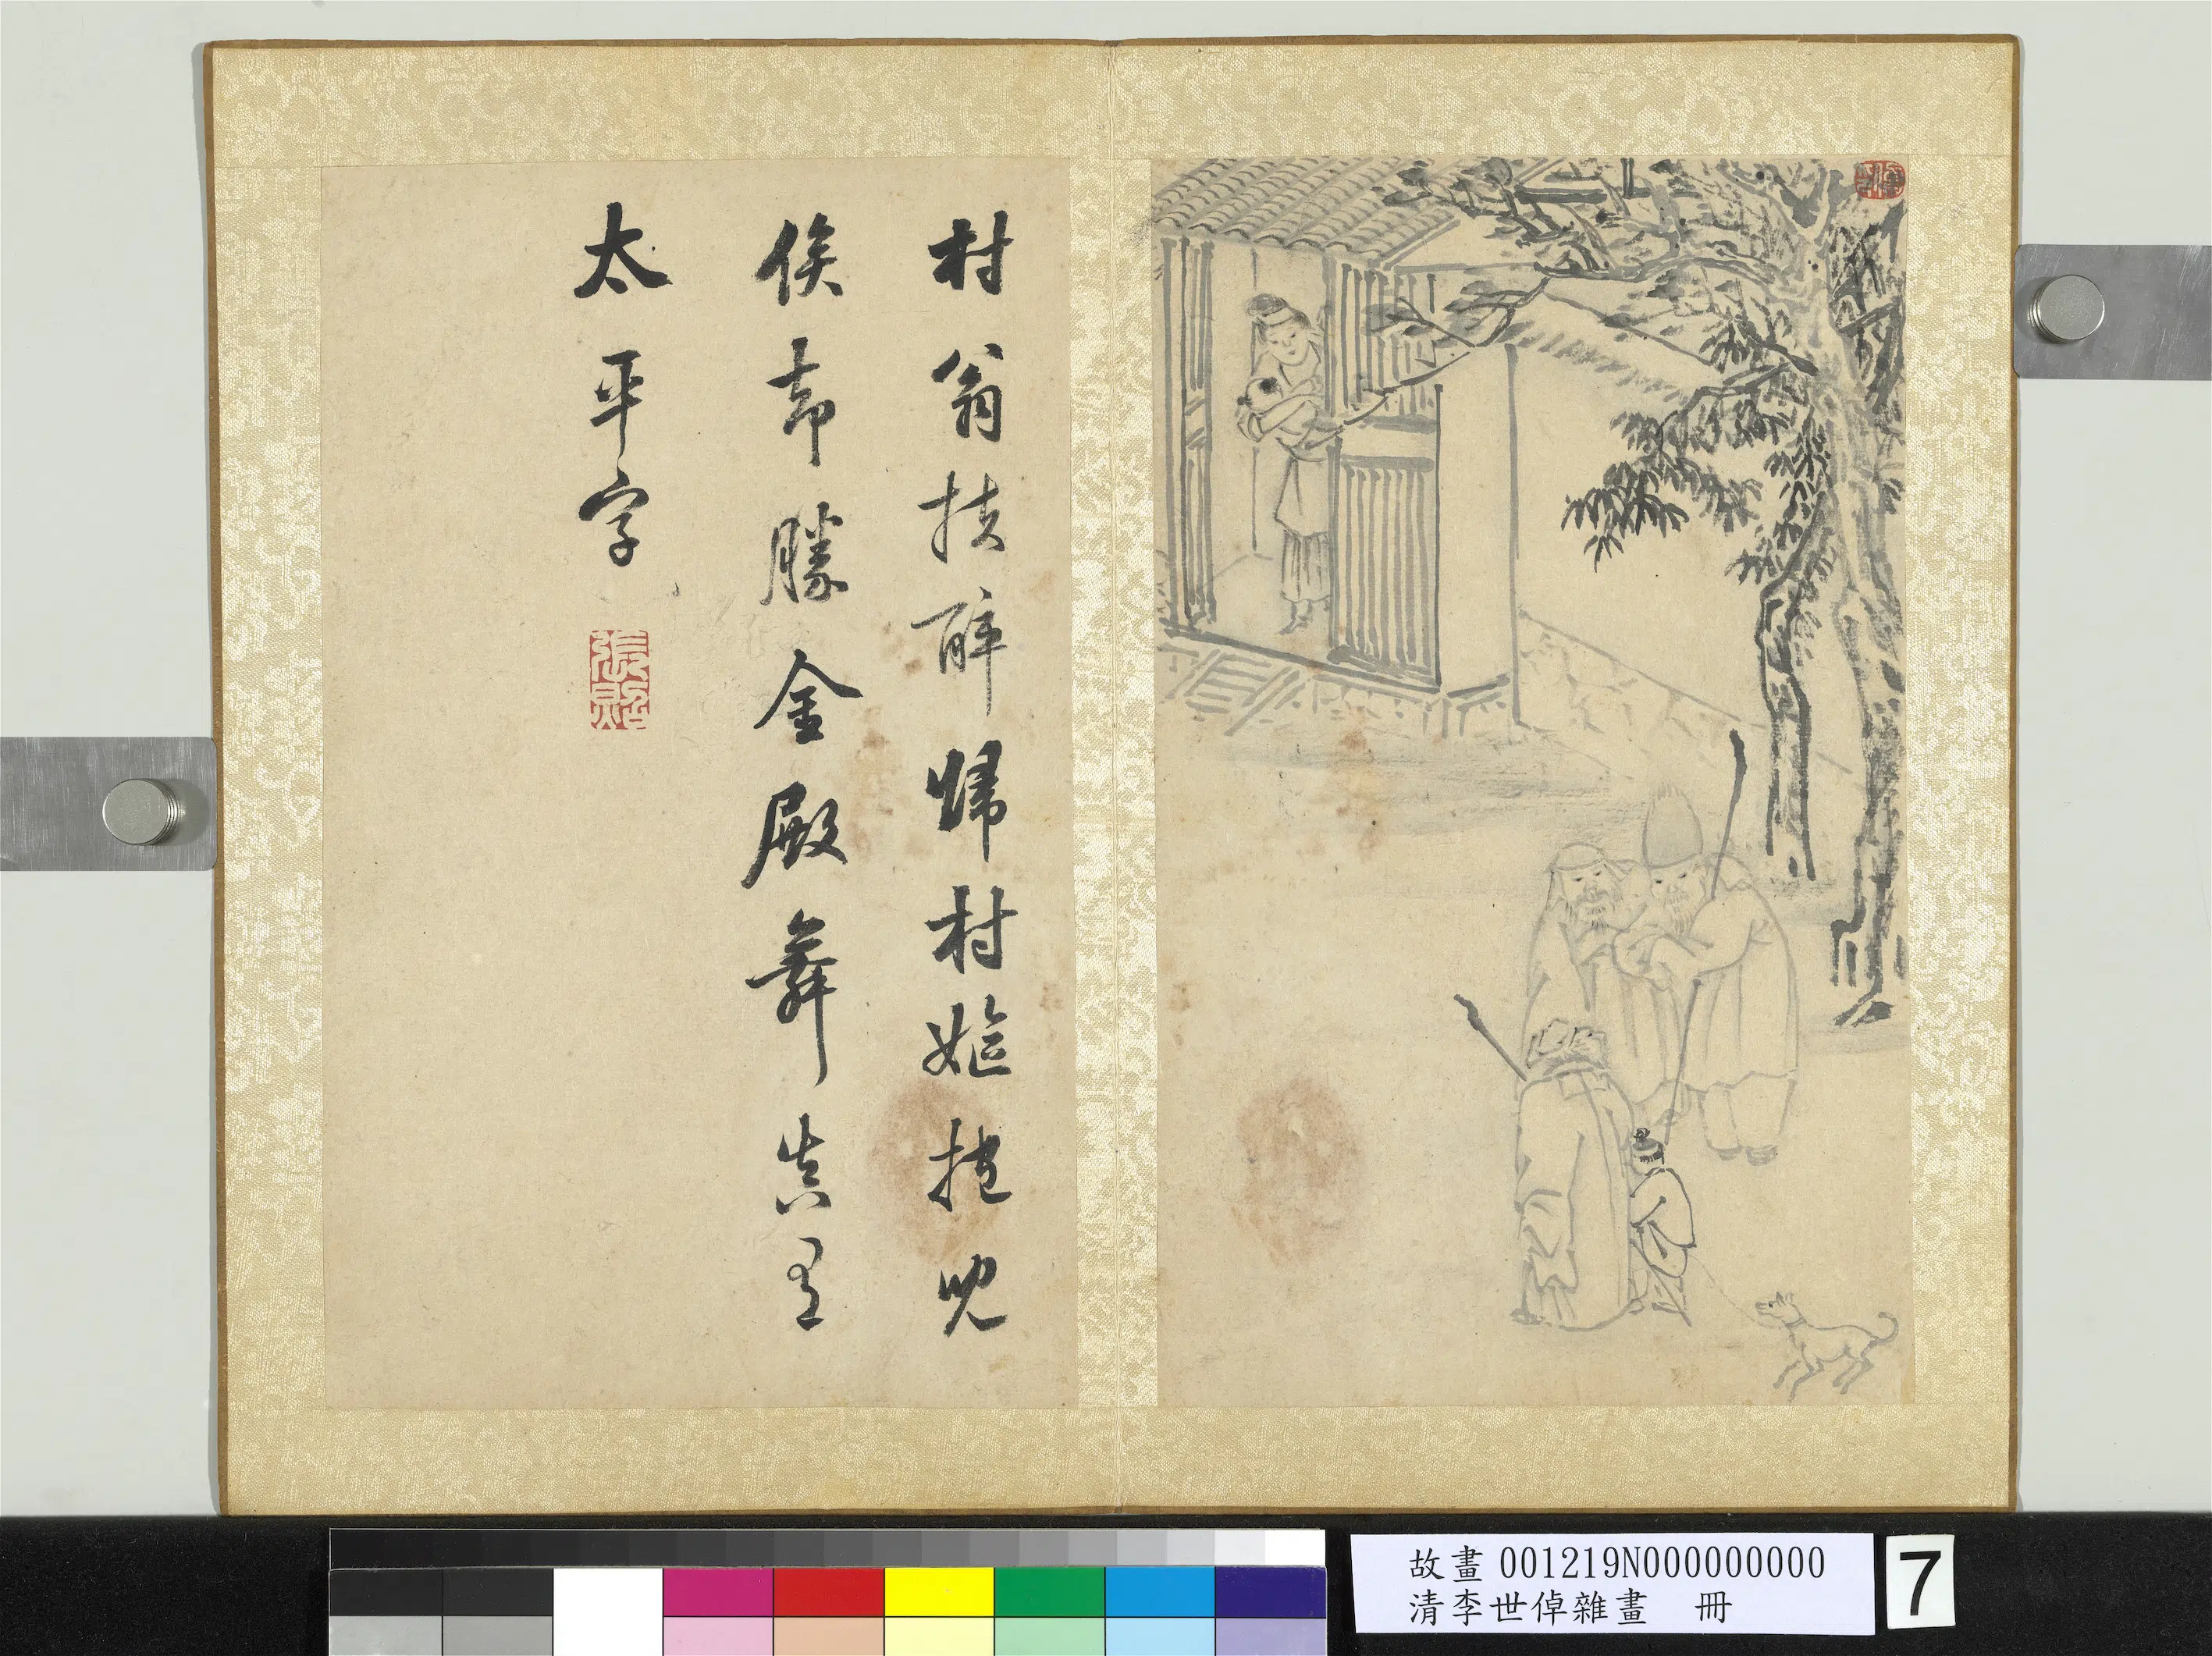 村翁扶醉歸村嫗抱兒
俟却勝金殿舞真呈
太平字
張照
故畫 001219N000000000
清李世倬雜畫 冊
7